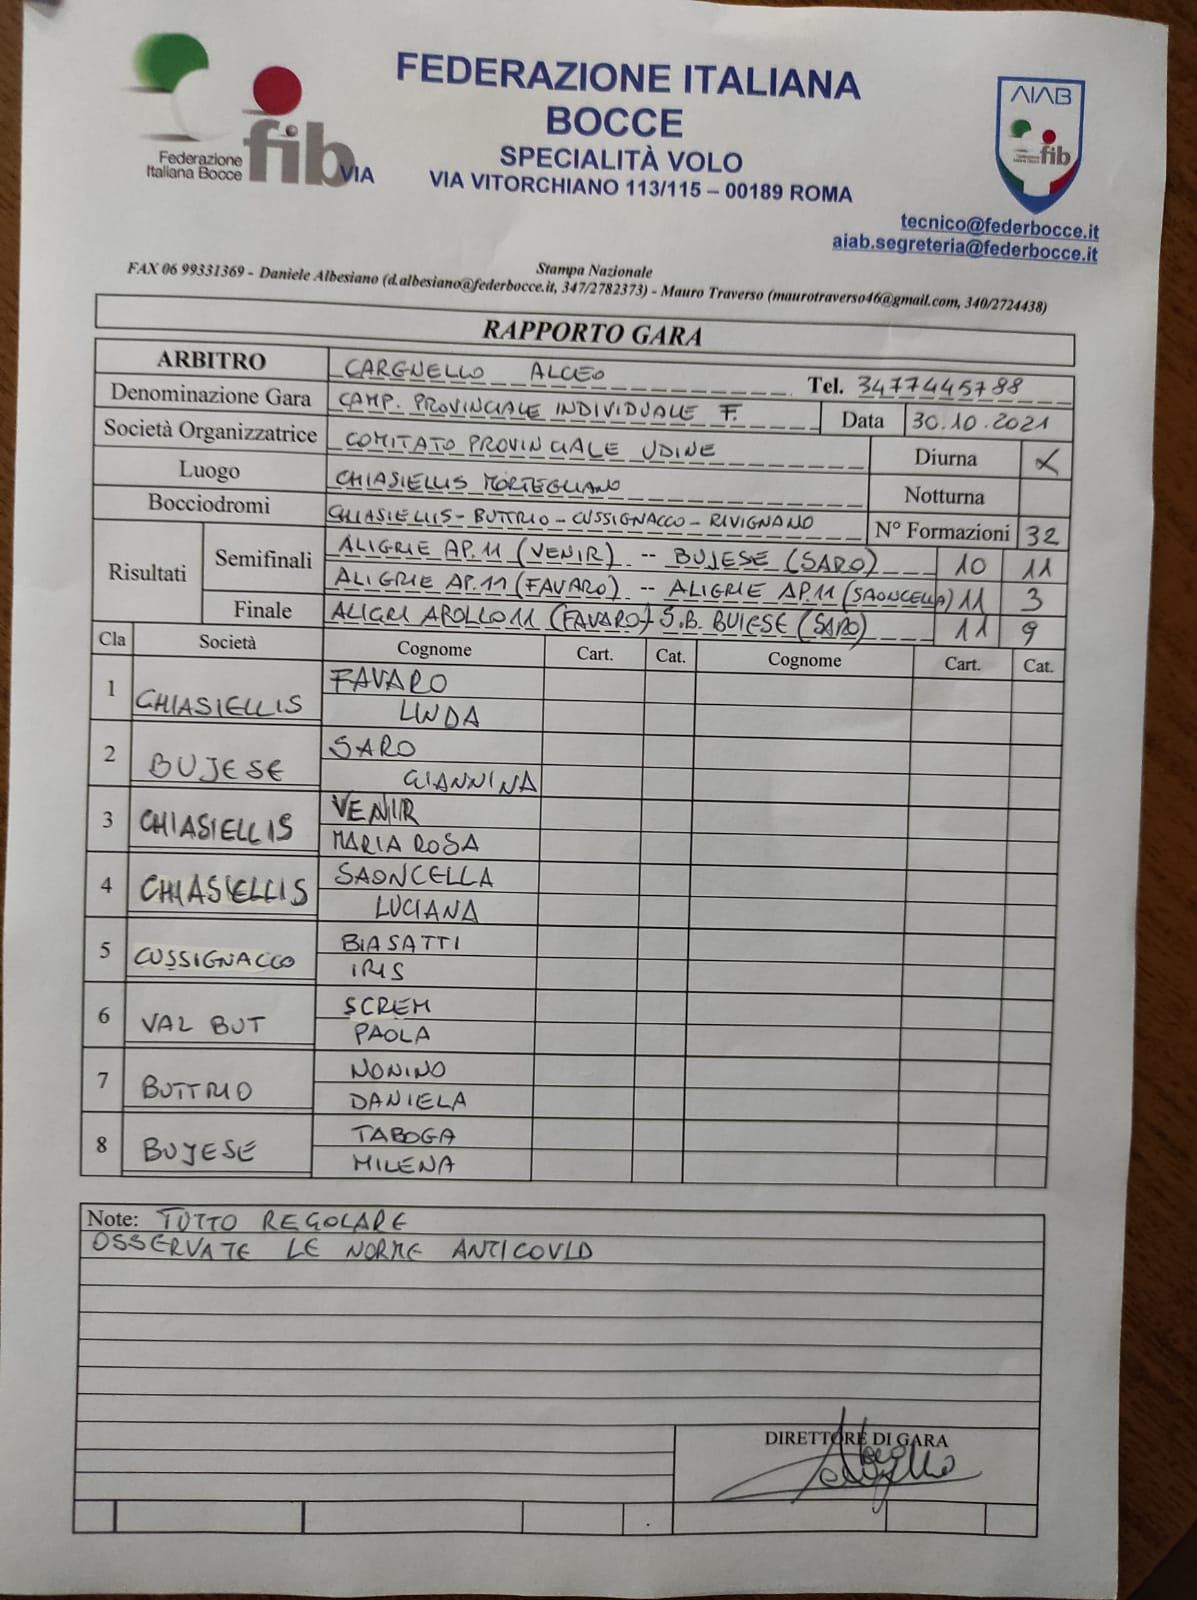 FEDERAZIONE ITALIANA
BOCCE
SPECIALITÀ VOLO
VIA VITORCHIANO 113/115 – 00189 ROMA
Federazione
Italiana Bocce
fib
VIA
AIAB
fib
tecnico@federbocce.it
aiab.segreteria@federbocce.it
Stampa Nazionale
FAX 06 99331369 - Daniele Albesiano (d.albesiano@federbocce.it, 347/2782373) - Mauro Traverso (maurotraverso46@gmail.com, 340/2724438)
RAPPORTO GARA
ARBITRO CARGNELLO ALCEO Tel. 3477445788
Denominazione Gara CAMP. PROVINCIALE INDIVIDUALE F. Data 30.10.2021
Società Organizzatrice COMITATO PROVINCIALE UDINE Diurna X
Luogo CHIASIELLIS MORTEGLIANO Notturna
Bocciodromi CHIASIELLIS - BUTTRIO - CUSSIGNACCO - RIVIGNANO N° Formazioni 32
Risultati Semifinali ALIGRIE AP.11 (VENIR) -- BUJESE (SARO) 10 11
ALIGRIE AP.11 (FAVARO) -- ALIGRIE AP.11 (SAONCELLA) 11 3
Finale ALIGRI APOLLO 11 (FAVARO) - S.B. BUIESE (SARO) 11 9
Cla Società Cognome Cart. Cat. Cognome Cart. Cat.
1 CHIASIELLIS FAVARO
LINDA
2 BUJESE SARO
GIANNINA
3 CHIASIELLIS VENIR
MARIA ROSA
4 CHIASIELLIS SAONCELLA
LUCIANA
5 CUSSIGNACCO BIASATTI
IRIS
6 VAL BUT SCREM
PAOLA
7 BUTTRIO NONINO
DANIELA
8 BUJESE TABOGA
MILENA
Note: TUTTO REGOLARE
OSSERVATE LE NORME ANTICOVID
DIRETTORE DI GARA